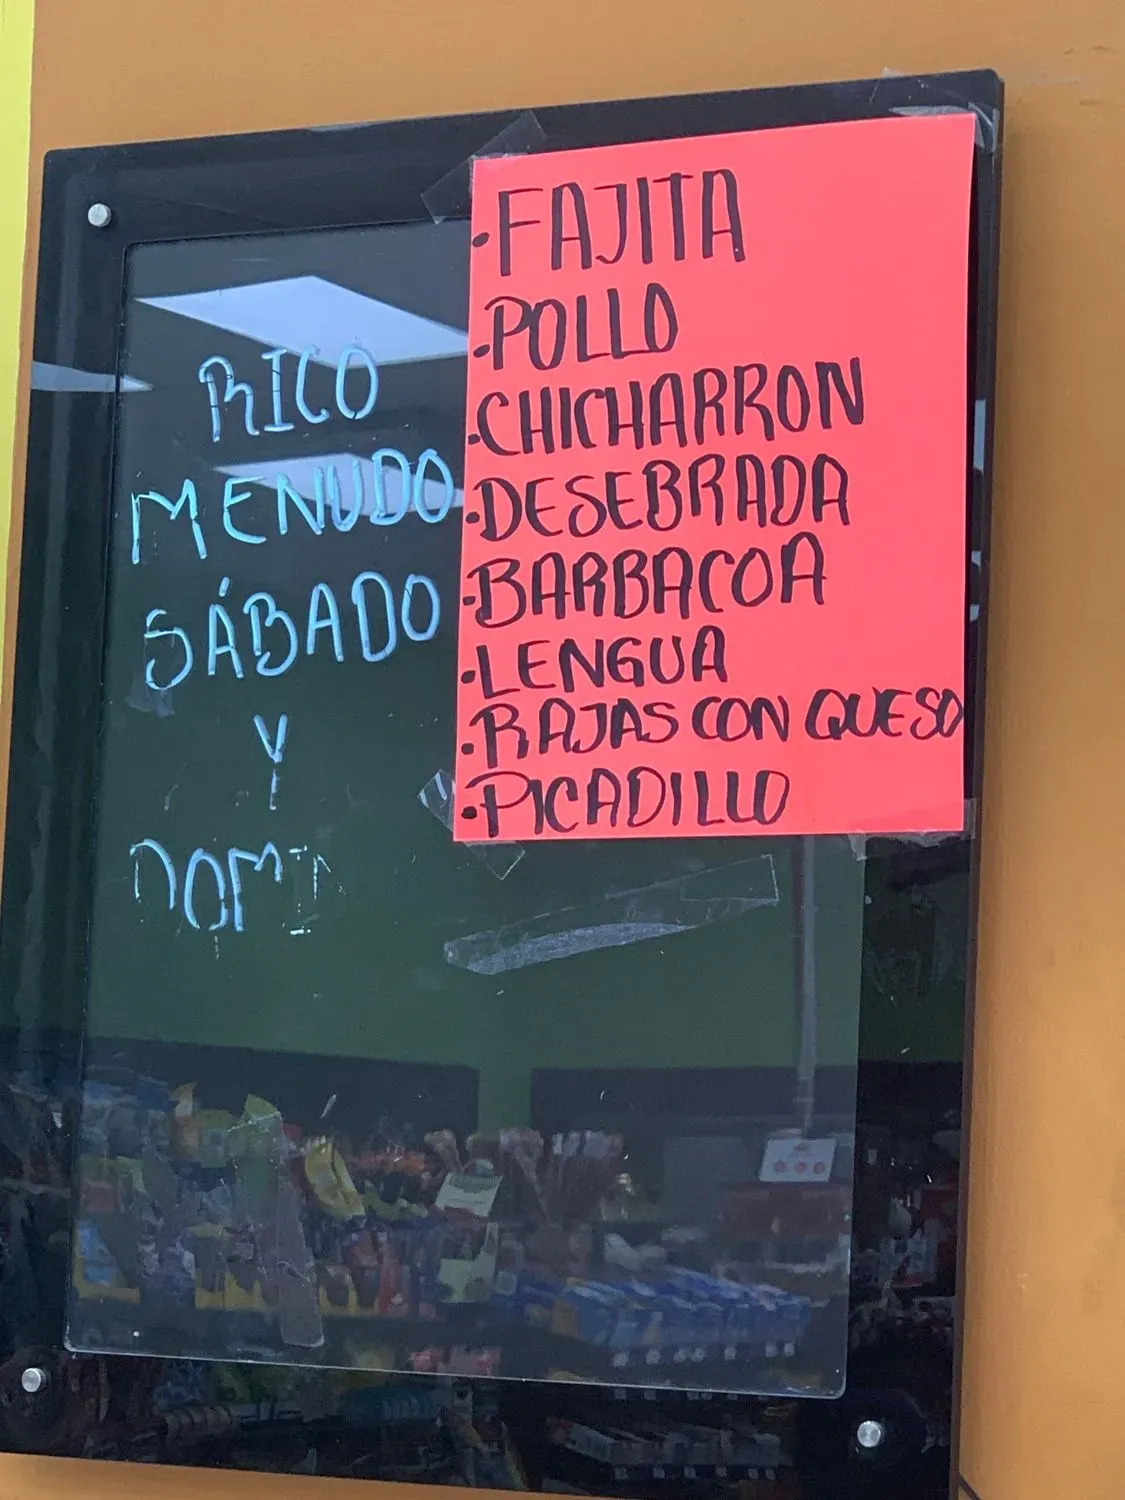 RICO
MENUDO
SÁBADO
Y
DOMI
·FAJITA
·POLLO
·CHICHARRON
·DESEBRADA
·BARBACOA
·LENGUA
·RAJAS CON QUESO
·PICADILLO